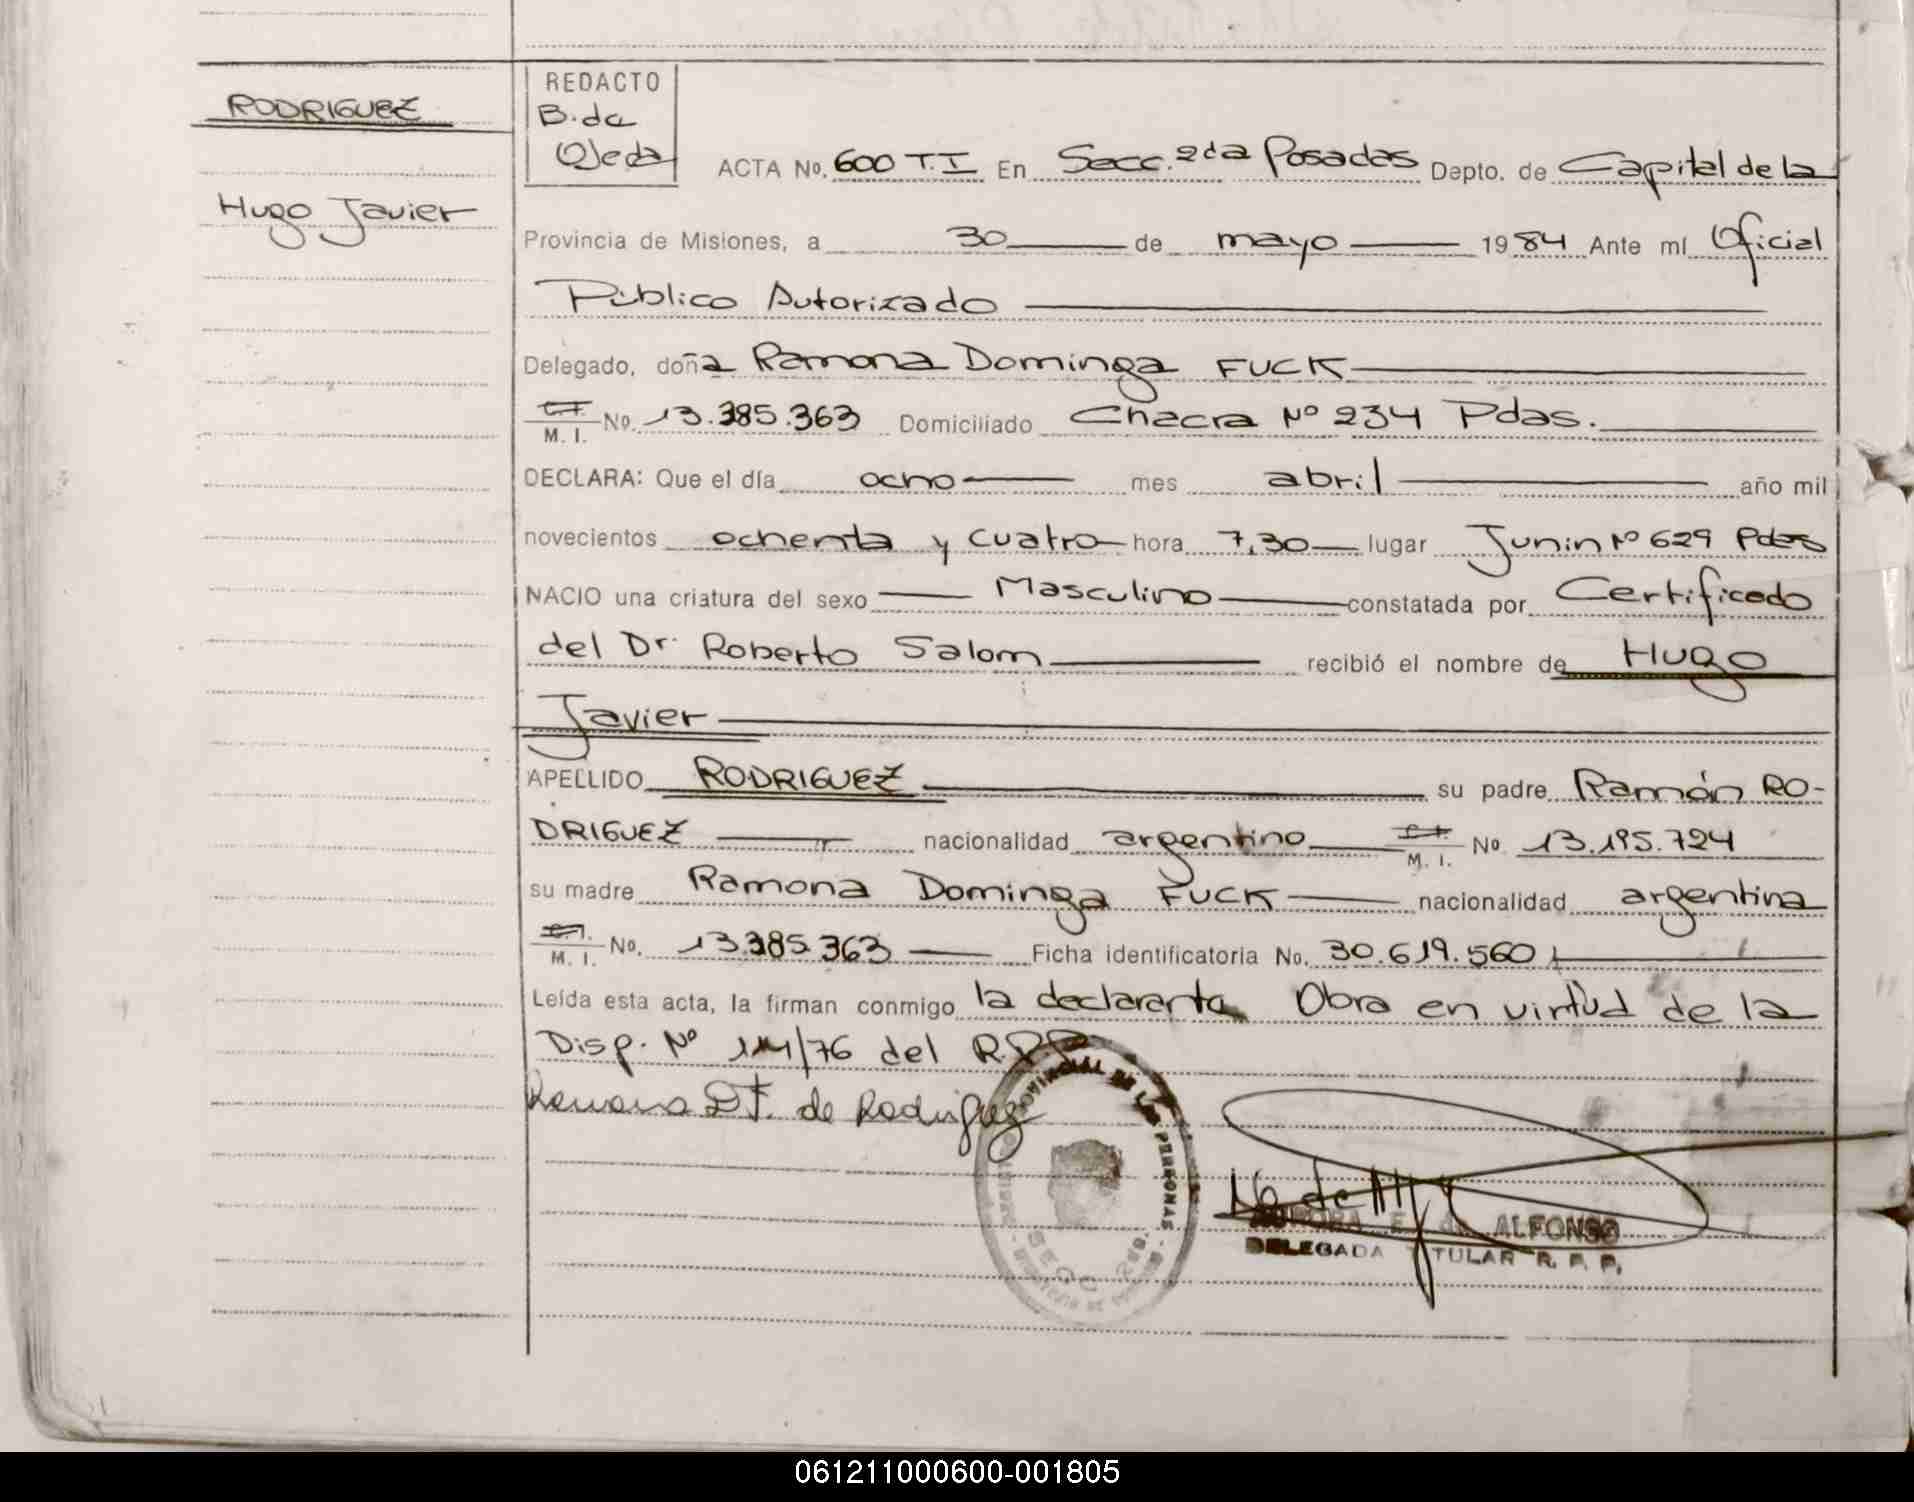 RODRIGUEZ
Hugo Javier
REDACTO
B. de
Ojeda
ACTA No. 600 T.I En Secc. 2da Posadas Depto. de Capital de la
Provincia de Misiones, a 30 de mayo 1984 Ante mí Oficial
Público Autorizado
Delegado, doña Ramona Dominga FUCK
C.I. M. I. No. 13.385.363 Domiciliado Chacra Nº 234 Pdas.
DECLARA: Que el día ocho mes abril año mil
novecientos ochenta y cuatro hora 7,30 lugar Junin Nº 629 Pdas
NACIO una criatura del sexo Masculino constatada por Certificado
del Dr. Roberto Salom recibió el nombre de Hugo
Javier
APELLIDO RODRIGUEZ su padre Ramón RO-
DRIGUEZ nacionalidad argentino C.I. M. I. No 13.195.724
su madre Ramona Dominga FUCK nacionalidad argentina
C.I. M. I. No. 13.385.363 Ficha identificatoria No. 30.619.560
Leída esta acta, la firman conmigo la declarante Obra en virtud de la
Disp. Nº /76 del R.P.P
Ramona D F. de Rodriguez
PROVINCIAL DE LAS PERSONAS
SECC. 2da.
AURORA E. de ALFONSO
DELEGADA TITULAR R. P. P.
061211000600-001805